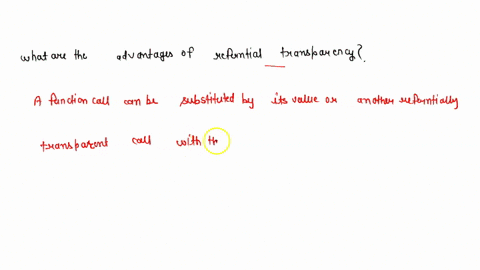 what are the advantages of referntial transparency?.
A function call can be substituted by its value or another referntially
transparent call with th